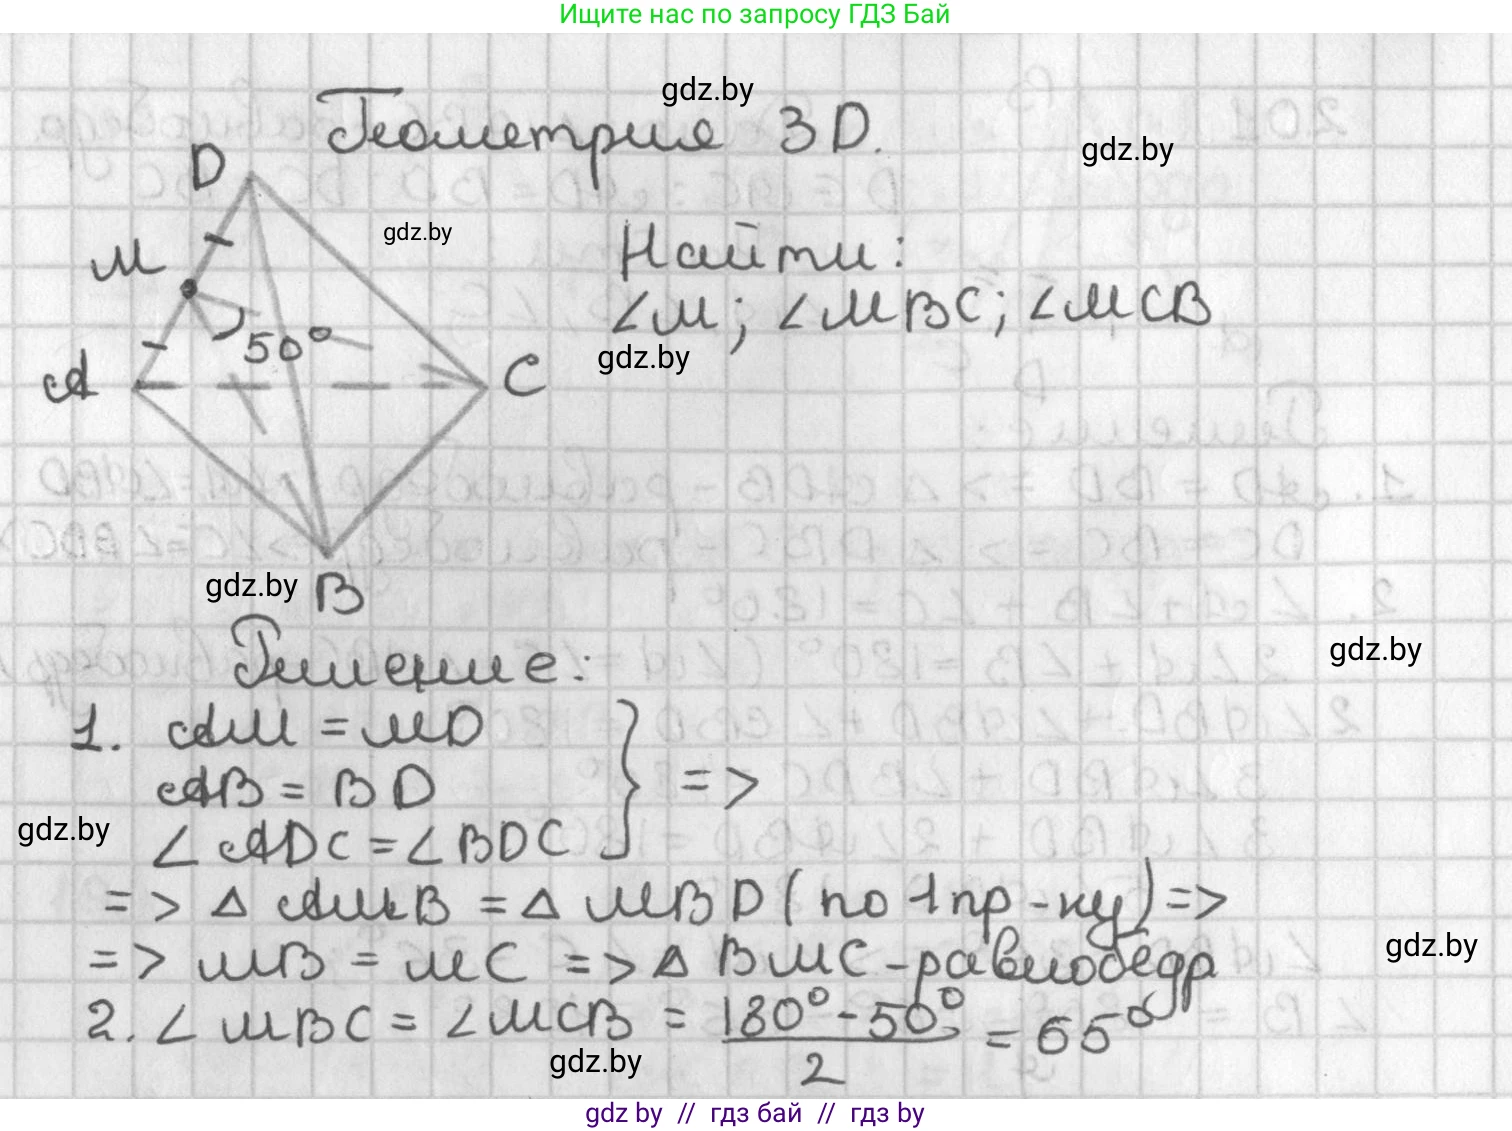 Ищите нас по запросу ГДЗ Бай
gdz.by
Геометрия 3D.
gdz.by
D
gdz.by
M
Найти:
∠M; ∠MBC; ∠MCB
50°
gdz.by
A
C
gdz.by
B
Решение:
gdz.by
1. AM = MD
AB = BD
gdz.by
∠ADC = ∠BDC } =>
=> △ AMB = △ MBD (по 1 пр-ку) =>
gdz.by
=> MB = MC => △ BMC - равнобедр
2. ∠MBC = ∠MCB = (180° - 50°)/2 = 65°
gdz.by
gdz by // гдз бай // гдз by